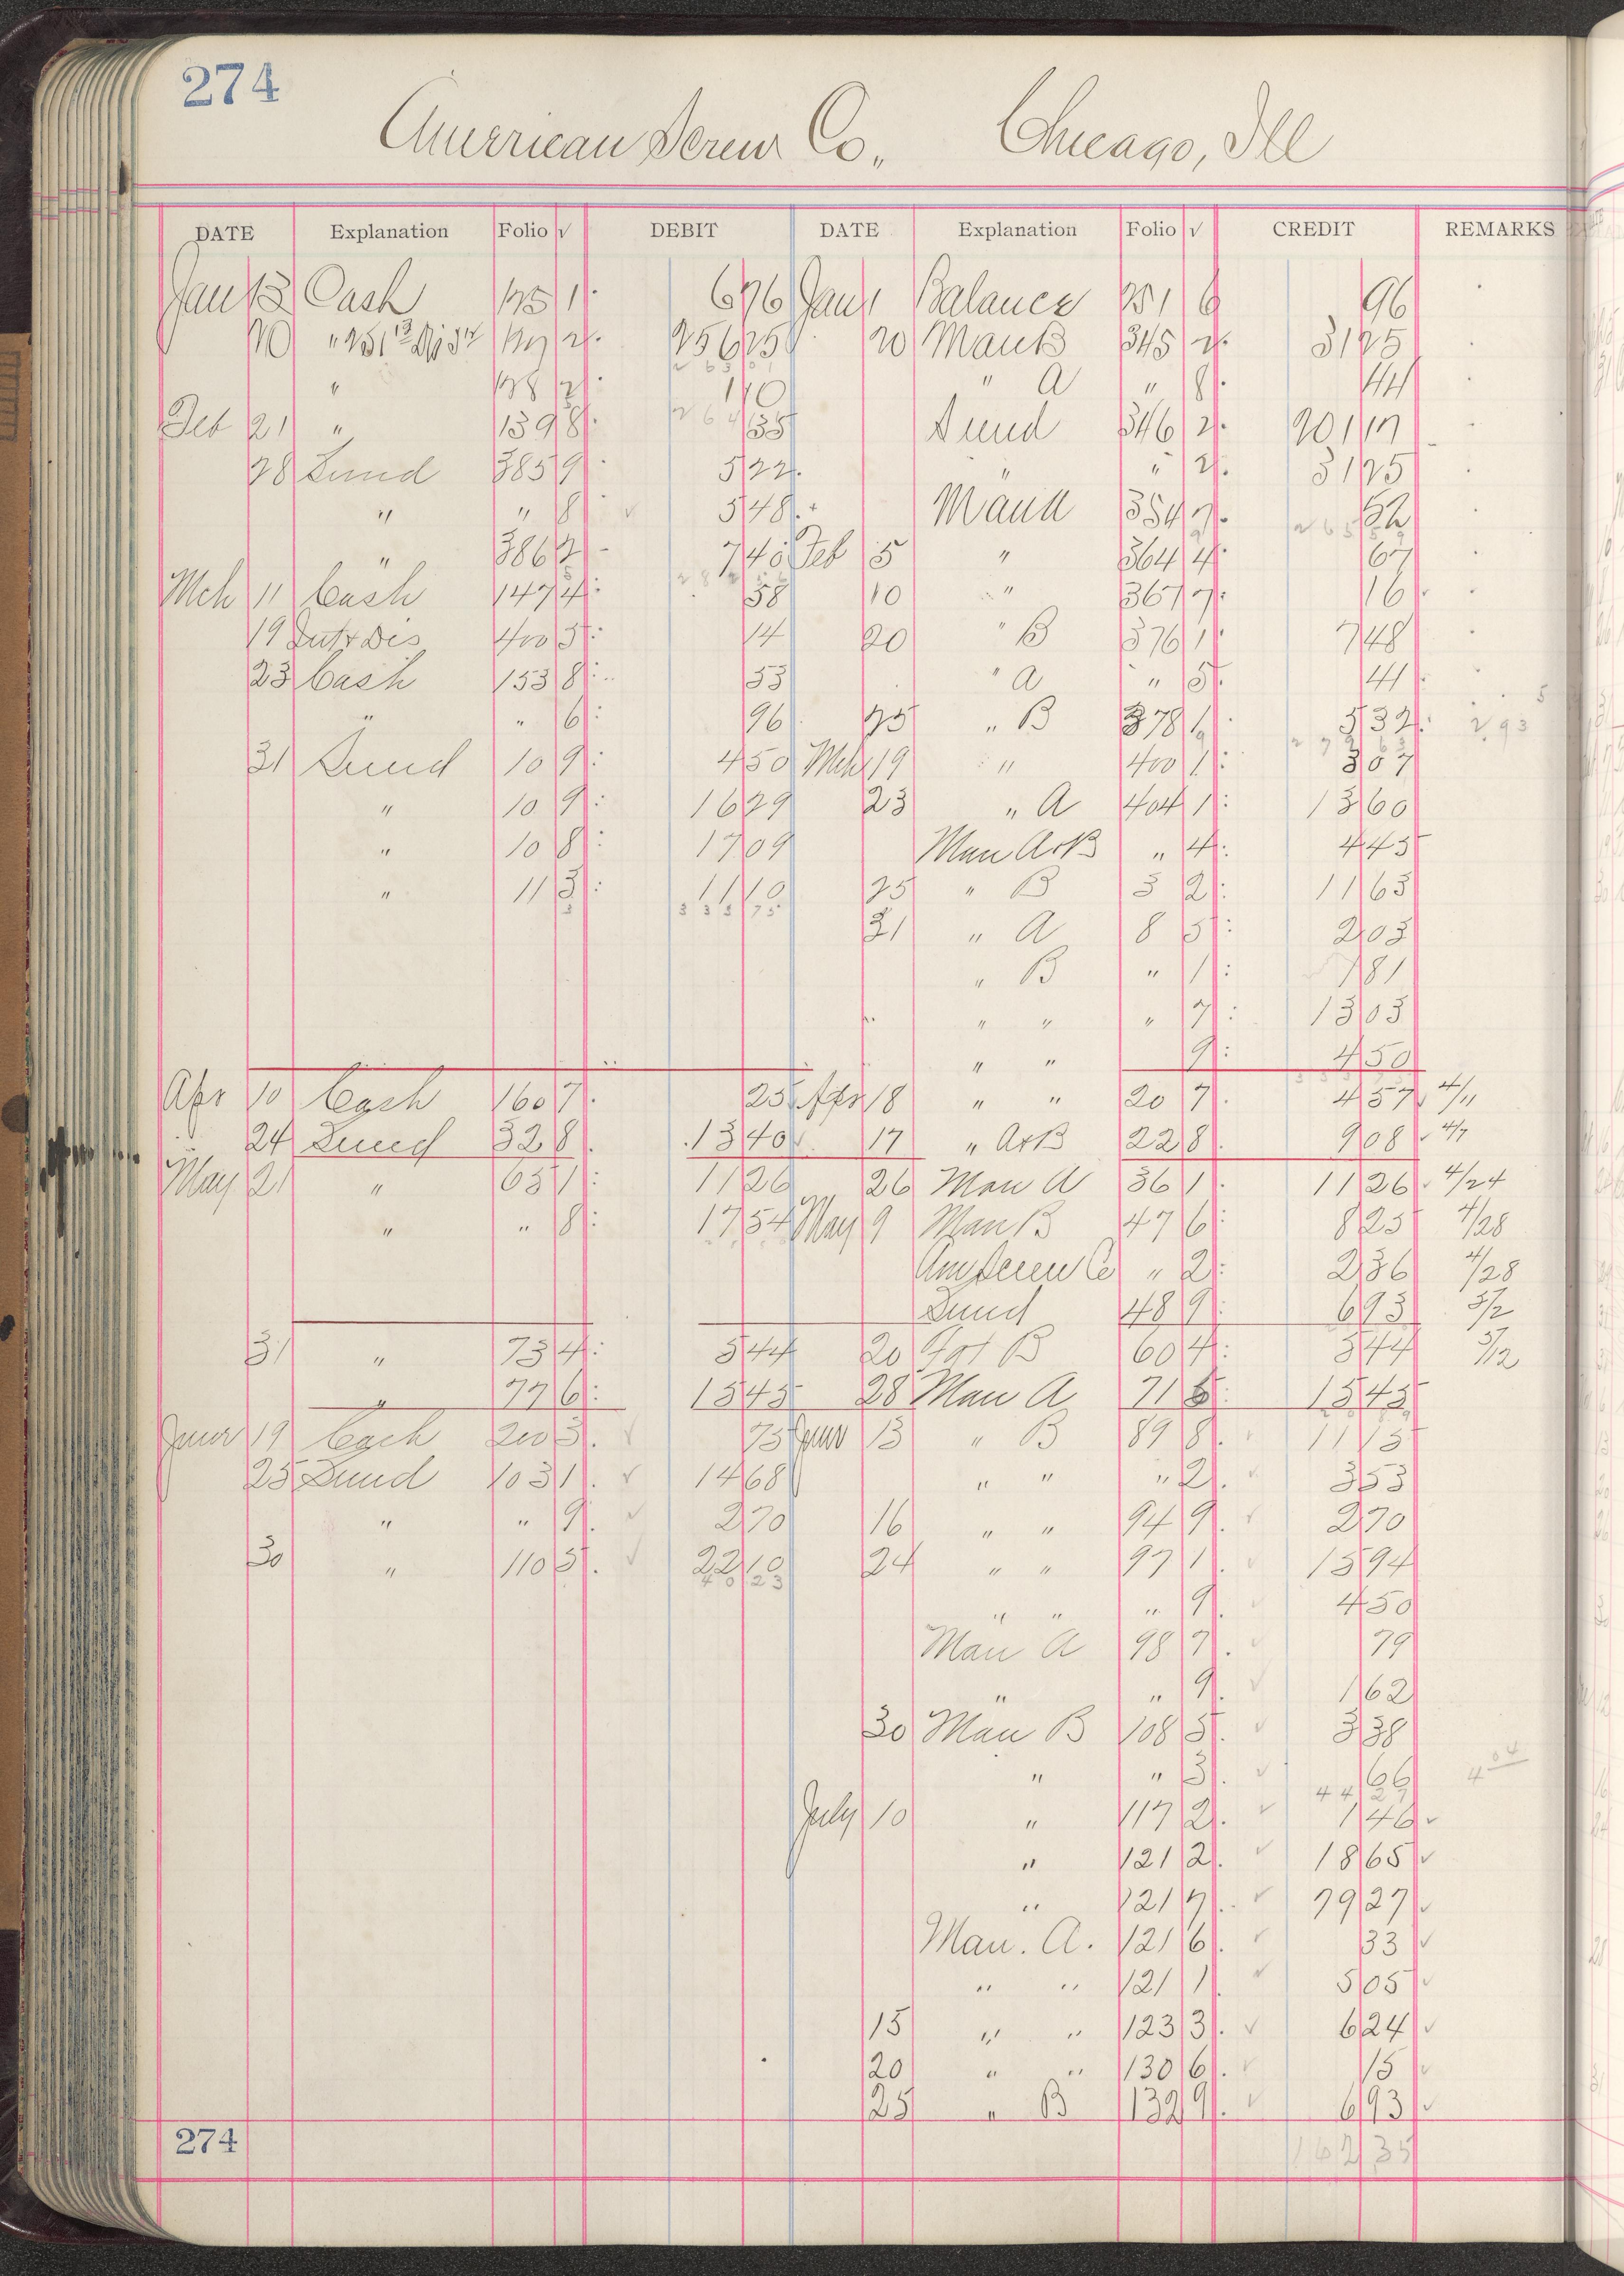 274
American Screw Co., Chicago, Ill
DATE Explanation Folio √ DEBIT DATE Explanation Folio √ CREDIT REMARKS
Jan 13 Cash 125 1 6 76 Jan 1 Balance 251 6 96
20 " 2 256 25 20 Man B 345 2 31 25
" 128 2 1 10 " A " 8 44
Feb 21 " 139 8 35 Sund 346 2 201 17
28 Sund 385 9 5 22 " " 2 31 25
" " 8 5 48 Man A 354 7 52
" 386 2 7 40 Feb 5 " 364 4 67
Mch 11 Cash 147 4 58 10 " 367 7 16
19 Int & Dis 400 5 14 20 " B 376 1 7 48
23 Cash 153 8 53 " A " 5 41
" " 6 96 25 " B 378 1 5 32 2 93
31 Sund 10 9 4 50 Mch 19 " 400 1 3 67
" 10 9 16 29 23 " A 404 1 13 60
" 10 8 17 09 Man A & B " 4 4 45
" 11 3 11 10 25 " B 3 2 11 63
333 75
31 " A 8 5 2 03
" B " 1 7 81
" " " 7 13 03
" " 9 4 50
Apr 10 Cash 160 7 25 Apr 18 " " 20 7 4 57 4/11
24 Sund 32 8 13 40 17 " A & B 22 8 9 08 4/7
May 21 " 63 1 11 26 26 Man A 36 1 11 26 4/24
" " 8 17 54 May 9 Man B 47 6 8 25 4/28
Am Screw Co " 2 2 36 4/28
Sund 48 9 6 93 5/2
31 " 73 4 5 44 20 B 60 4 5 44 5/12
" 77 6 15 45 28 Man A 71 6 15 45
June 19 Cash 200 3 75 June 13 " B 89 8 11 15
25 Sund 103 1 14 68 " " " 2 3 53
" " 9 2 70 16 " " 94 9 2 70
30 " 110 5 22 10 24 " " 97 1 15 94
40 23
" " " 9 4 50
Man A 98 7 79
" " 9 1 62
30 Man B 108 5 3 38
" " 3 66 4 04
July 10 " 117 2 1 46
" 121 2 18 65
" 121 7 79 27
Man. A. 121 6 33
" " 121 1 5 05
15 " " 123 3 6 24
20 " " 130 6 15
25 " B 132 9 6 93
274 162 35